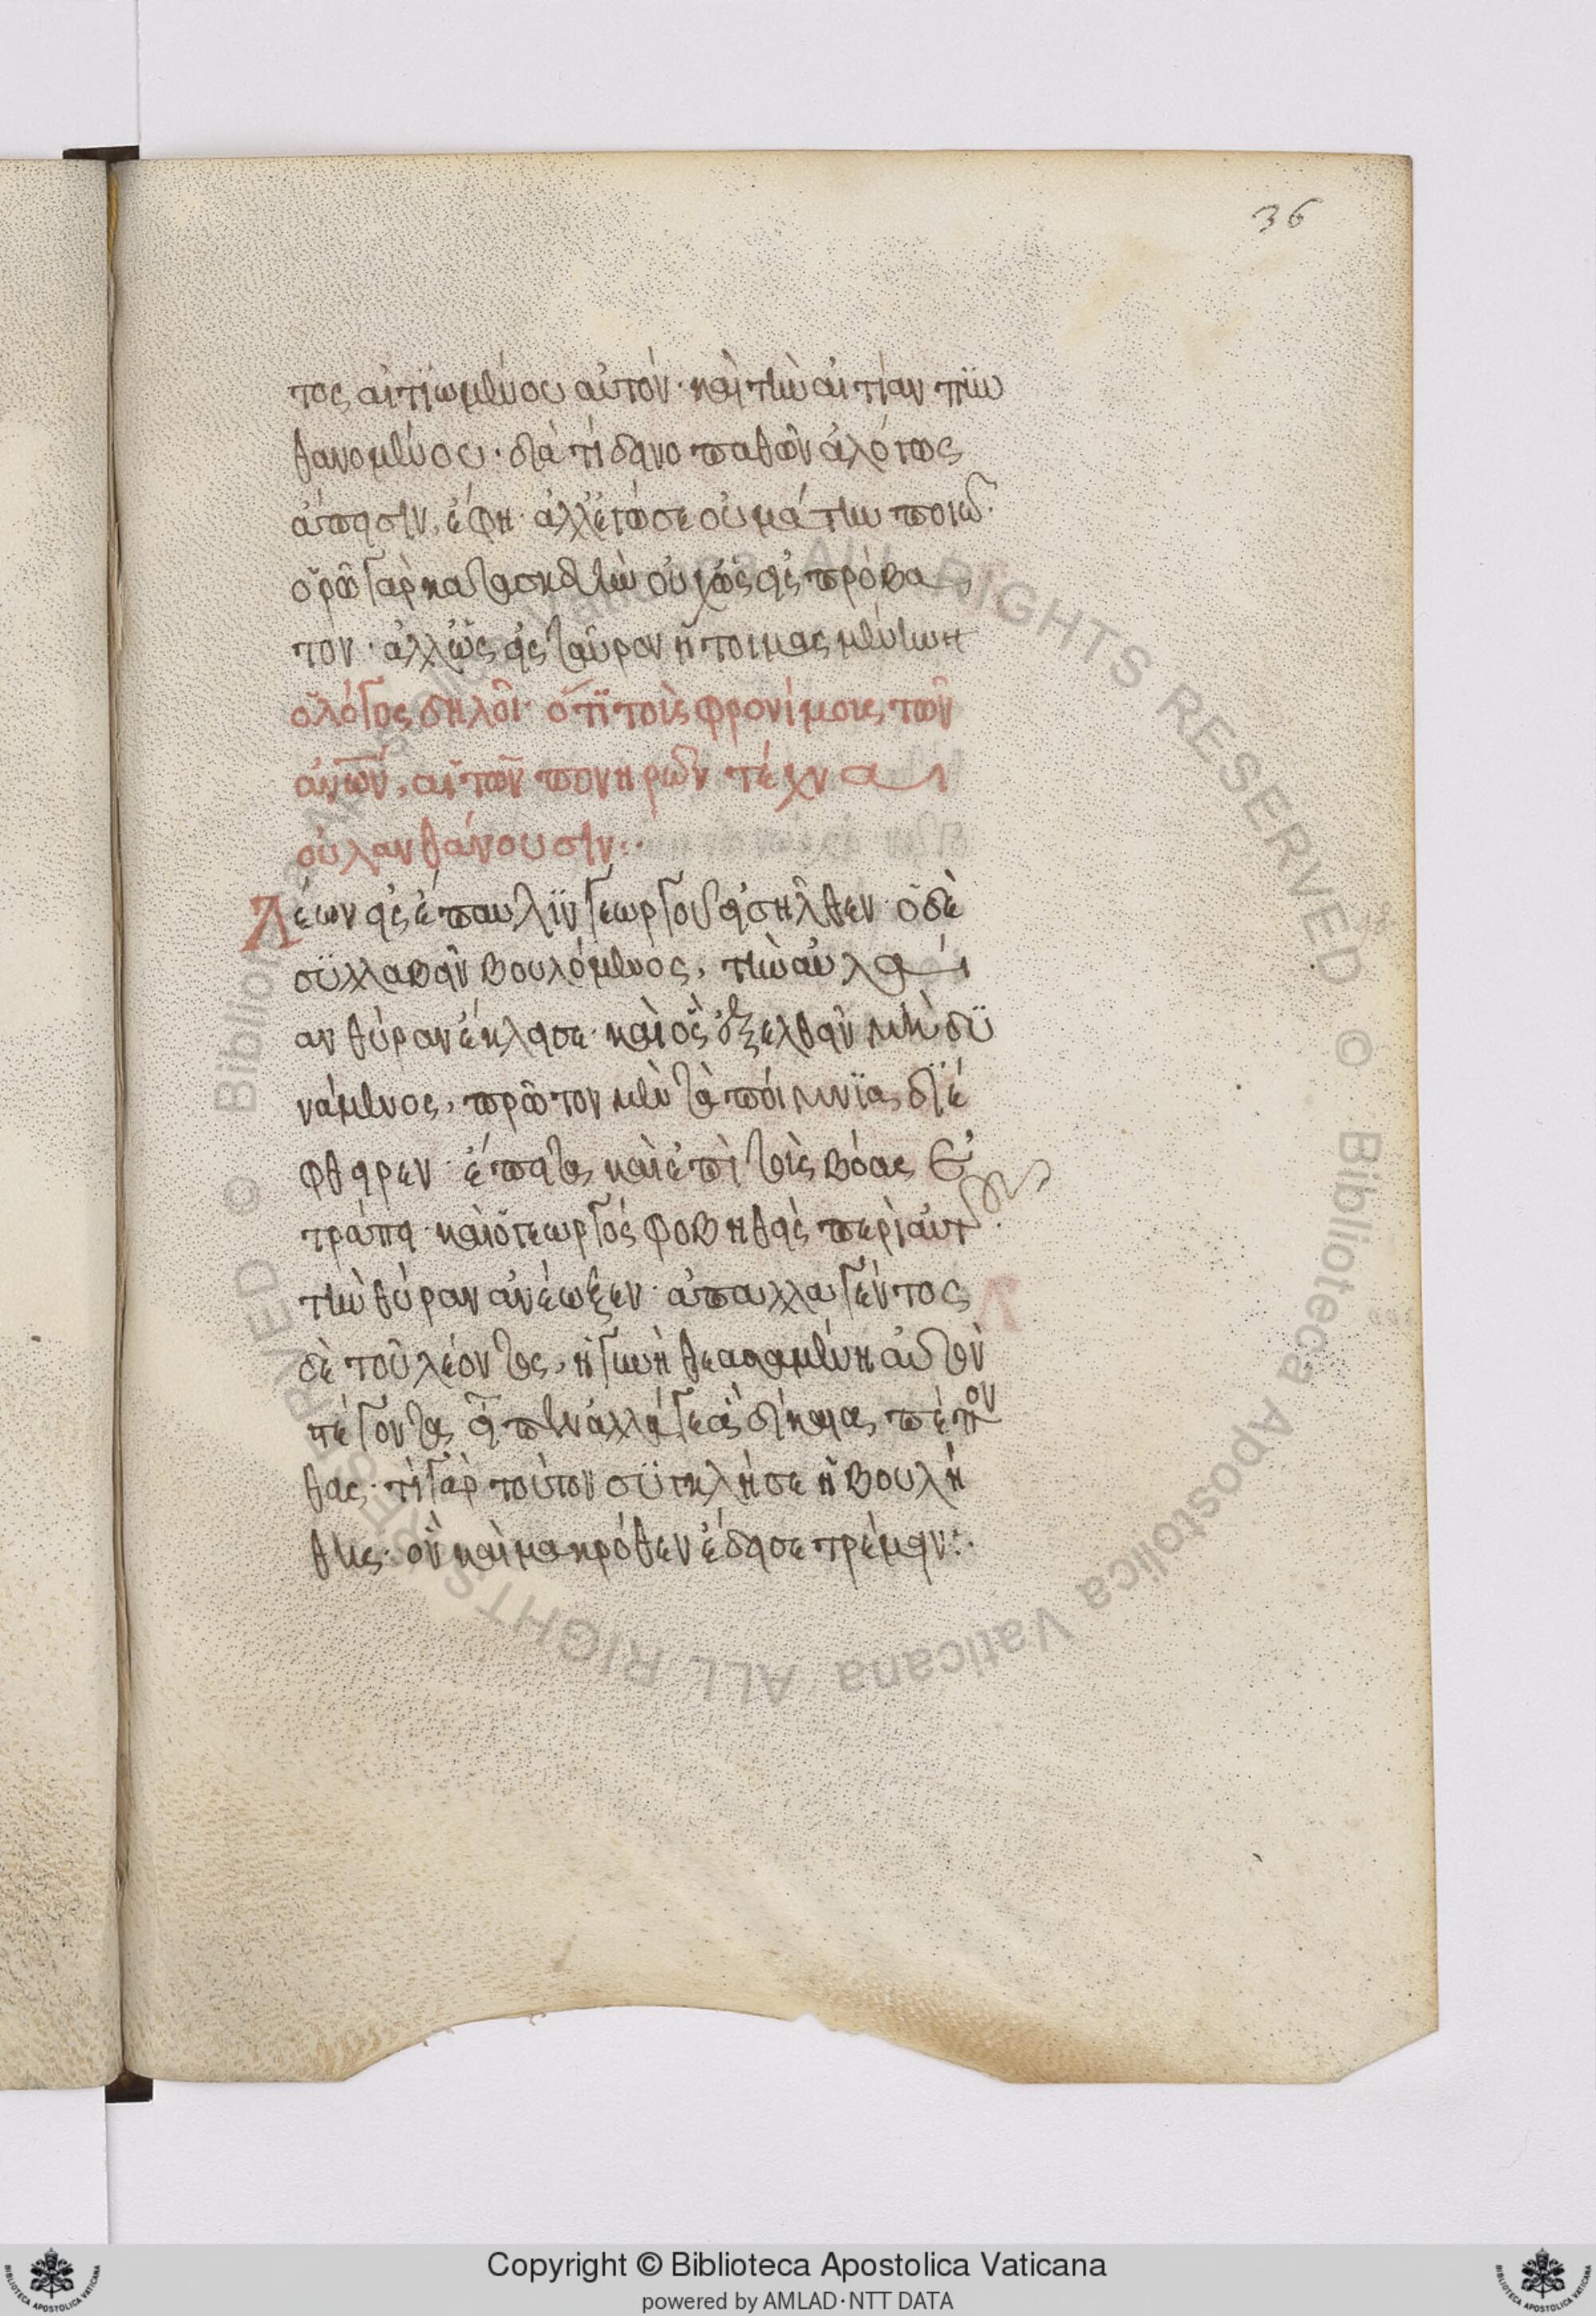 36
τος αἰτϊωμένου αὐτόν· καὶ τὴν αἰτίαν πϋν
θανομένου· διὰ τί δεινὸ παθὼν ἀλόγως
ἄπεισιν, ἔφη· ἀλλ' ἔγωγε οὐ μάτην ποιῶ·
ὁρῶ γὰρ κατασκευὴν οὐχ ὡς εἰς πρόβα
τον· ἀλλ' ὡς εἰς ταῦρον ἡτοιμασμένην
ὁ λόγος δηλοῖ· ὅτϊ τοὺς φρονίμους τῶν
ἀνων, αἱ τῶν πονηρῶν τέχναι
οὐ λανθάνουσιν:·
Λέων εἰς ἔπαυλϊν γεωργοῦ εἰσῆλθεν· ὁ δὲ
σϋλλαβεῖν βουλόμενος, τὴν αὐλεί
αν θύραν ἔκλεισε· καὶ ὃς ἐξελθεῖν μὴ δϋ
νάμενος, πρῶτον μὲν τὰ ποίμνϊα διέ
φθειρεν· ἔπειτα καὶ ἐπὶ τὰς βόας ἐ
τράπη· καὶ ὁ γεωργὸς φοβηθεὶς περὶ αὑτοῦ·
τὴν θύραν ἀνέωξεν· ἀπαλλαγέντος
δὲ τοῦ λέοντος, ἡ γυνὴ θεασαμένη αὐτὸν
στένοντα εἶπεν ἀλλὰ γε σὺ δίκαια πέπον
θας· τί γὰρ τοῦτον σϋγκλεῖσαι ἠβουλή
θης· ὃν καὶ μακρόθεν ἔδει σε τρέμειν:·
Copyright © Biblioteca Apostolica Vaticana
powered by AMLAD·NTT DATA